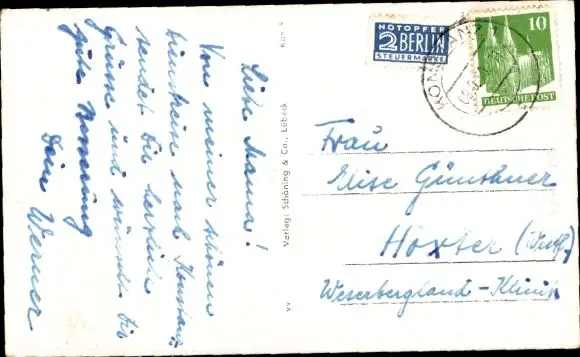 Liebe Mama!
Von meiner schönen
nach Konstanz
sendet Dir herzliche
Grüsse und wünscht Dir
gute Besserung
Dein Werner
Kon
Verlag: Schöning & Co., Lübeck
NOTOPFER
2 BERLIN
STEUERMARKE
10
DEUTSCHE POST
KONSTANZ
Frau
Elise Günthner
Höxter (Westf.)
Weserbergland-Klinik